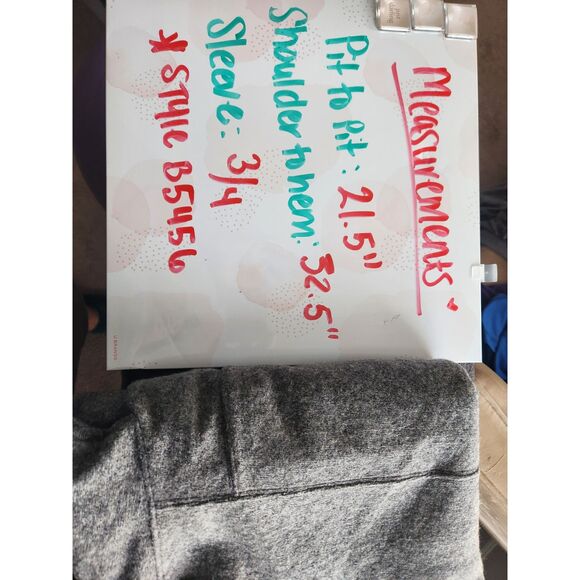 Measurements
Pit to Pit: 21.5"
Shoulder to hem: 32.5"
Sleeve: 3/4
* Style B5456
U BRANDS